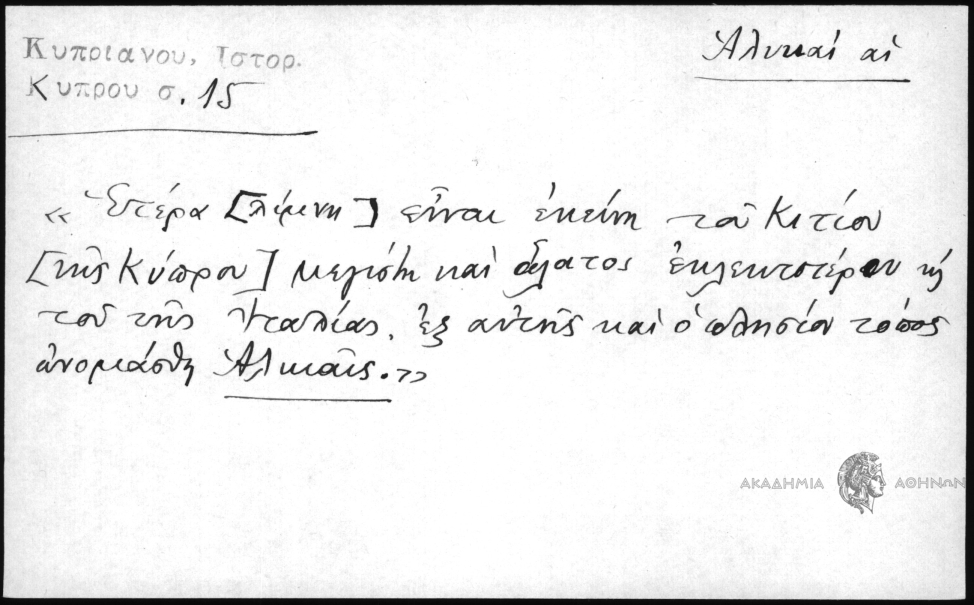 Κυπριανου, Ιστορ.
Κυπρου σ. 15
Ἁλυκαί αἱ
« Ἑτέρα [λίμνη] εἶναι ἐκείνη τοῦ Κιτίου
[τῆς Κύπρου] μεγίστη καὶ ἅλατος ἐκλεκτοτέρου ἢ
τοῦ τῆς Ἰταλίας, ἐξ αὐτῆς καὶ ὁ πλησίον τόπος
ὠνομάσθη Ἁλυκαῖς.»
ΑΚΑΔΗΜΙΑ ΑΘΗΝΩΝ